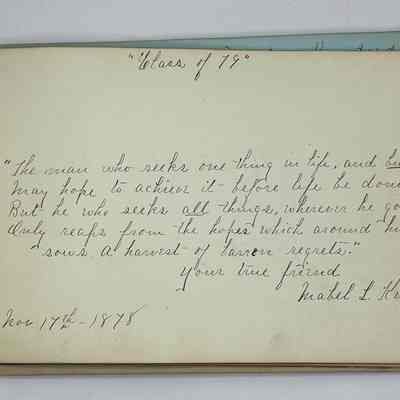 "Class of 79"
"The man who seeks one thing in life, and
May hope to achieve it before life be done
But he who seeks all things, wherever he
Only reaps from the hopes which around
sows, A harvest of barren regrets."
Your true friend
Mabel L.
Nov 17th - 1878